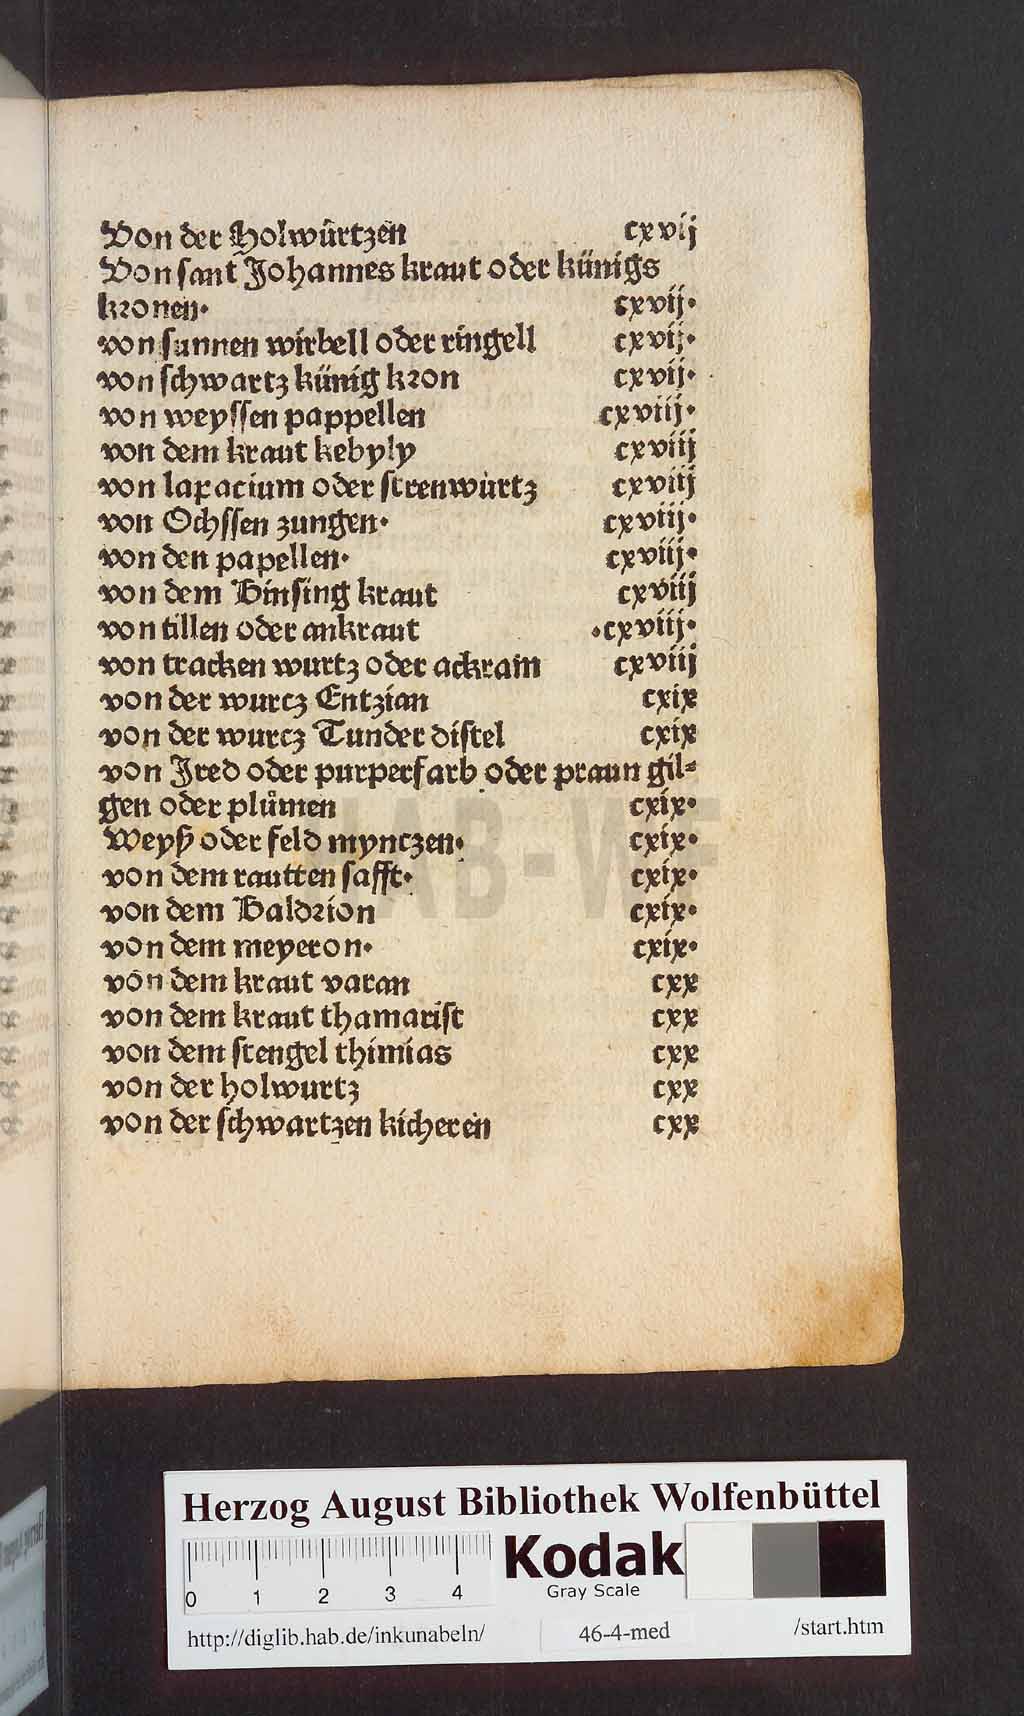 Von der Holwürtzen cxvij
Von sant Johannes kraut oder künigs
kronen. cxvij.
von sunnen wirbell oder ringell cxvij.
von schwartz künig kron cxvij.
von weyssen pappellen cxviij.
von dem kraut kebyly cxviij
von lapacium oder strenwürtz cxviij
von Ochssen zungen. cxviij.
von den papellen. cxviij.
von dem Binsing kraut cxviij
von tillen oder ankraut .cxviij.
von tracken wurtz oder ackrain cxviij
von der wurcz Entzian cxix
von der wurcz Tunder distel cxix
von Jred oder purperfarb oder praun gil⸗
gen oder plůmen cxix.
Weyß oder feld mynczen. cxix.
von dem rautten safft. cxix.
von dem Baldrion cxix.
von dem meyeron. cxix.
von dem kraut varan cxx
von dem kraut thamarist cxx
von dem stengel thimias cxx
von der holwurtz cxx
von der schwartzen kicheren cxx
HAB-WF
Herzog August Bibliothek Wolfenbüttel
0 1 2 3 4
Kodak
Gray Scale
http://diglib.hab.de/inkunabeln/ 46-4-med /start.htm